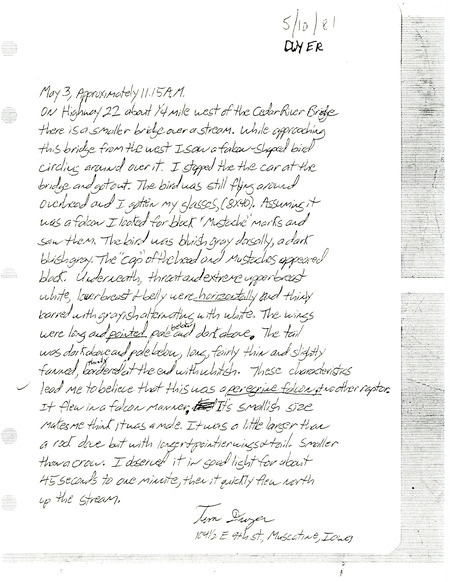 5/10/81
DWYER
May 3, Approximately 11:15 A.M.
On Highway 22 about 1/4 mile west of the Cedar River Bridge
there is a smaller bridge over a stream. While approaching
this bridge from the west I saw a falcon-shaped bird
circling around over it. I stopped the the car at the
bridge and got out. The bird was still flying around
overhead and I gotten my glasses, (8x40). Assuming it
was a falcon I looked for black "Mustache" marks and
saw them. The bird was bluish gray dorsally, a dark
bluish gray. The "cap" of the head and Mustaches appeared
black. Underneath, throat and extreme upper breast
white, lower breast & belly were horizontally and thinly
barred with grayish alternating with white. The wings
were long and pointed, pale below and dark above. The tail
was dark above and pale below, long, fairly thin and slightly
fanned, bordered at the end with whitish. These characteristics
lead me to believe that this was a peregrine falcon, no other raptor.
It flew in a falcon manner, It's smallish size
makes me think it was a male. It was a little larger than
a rock dove but with longer & pointier wings & tail. Smaller
than a crow. I observed it in good light for about
45 seconds to one minute, then it quickly flew north
up the stream.
Tim Dwyer
E 4th St, Muscatine, Iowa